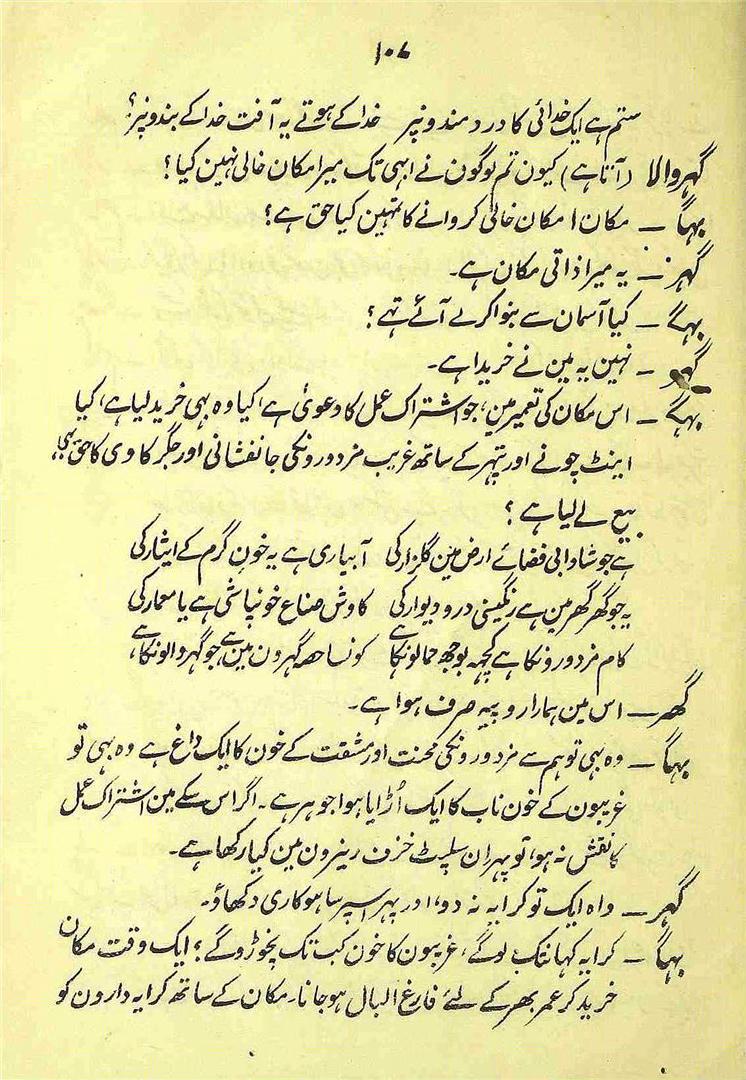 ۱۰۷
ستم ہے ایک خدائی کا دردمندونپر خدا کے ہوتے یہ آفت خدا کے بندونپر؟
گہروالا (آتا ہے) کیون تم لوگون نے ابہی تک میرا مکان خالی نہین کیا؟
بہاگ — مکان! مکان خالی کروانے کا تمہین کیا حق ہے؟
گہر — یہ میرا ذاتی مکان ہے۔
بہاگ — کیا آسمان سے بنوا کر لے آئے تہے؟
گہر — نہین یہ مین نے خریدا ہے۔
بہاگ — اس مکان کی تعمیر مین، جو اشتراک عمل کا دعویٰ ہے، کیا وہ بہی خرید لیا ہے، کیا
اینٹ چونے اور پتہر کے ساتھ غریب مزدورونکی جانفشانی اور جگر کاوی کا حق بہی
بیع لے لیا ہے؟
ہے جو شادابی فضائے ارض مین گلزار کی آبیاری ہے یہ خون گرم کے ایثار کی
یہ جو گھر گھر مین ہے رنگینی در و دیوار کی کاوش صناع خونپاشی ہے یا معمار کی
کام مزدورونکا ہے کچہہ بوجھ حمالونکا ہے کونسا حصہ گہرون مین ہے جو گہر والونکا ہے
گہر — اس مین ہمارا روپیہ صرف ہوا ہے۔
بہاگ — وہ بہی تو ہم سے مزدورونکی محنت اور مشقت کے خون کا ایک داغ ہے وہ بہی تو
غریبون کے خون ناب کا ایک اُڑایا ہوا جوہر ہے۔ اگر اس سکے مین اشتراک عمل
کا نقش نہ ہو، تو پہر ان سلپٹ خزف ریزون مین کیا رکھا ہے۔
گہر — واہ ایک تو کرایہ نہ دو، اور پہر اسپر ساہوکاری دکھاؤ۔
بہاگ — کرایہ کہانتک لوگے، غریبون کا خون کب تک نچوڑوگے؟ ایک وقت مکان
خرید کر عمر بھر کے لئے فارغ البال ہو جانا۔ مکان کے ساتھ کرایہ دارون کو